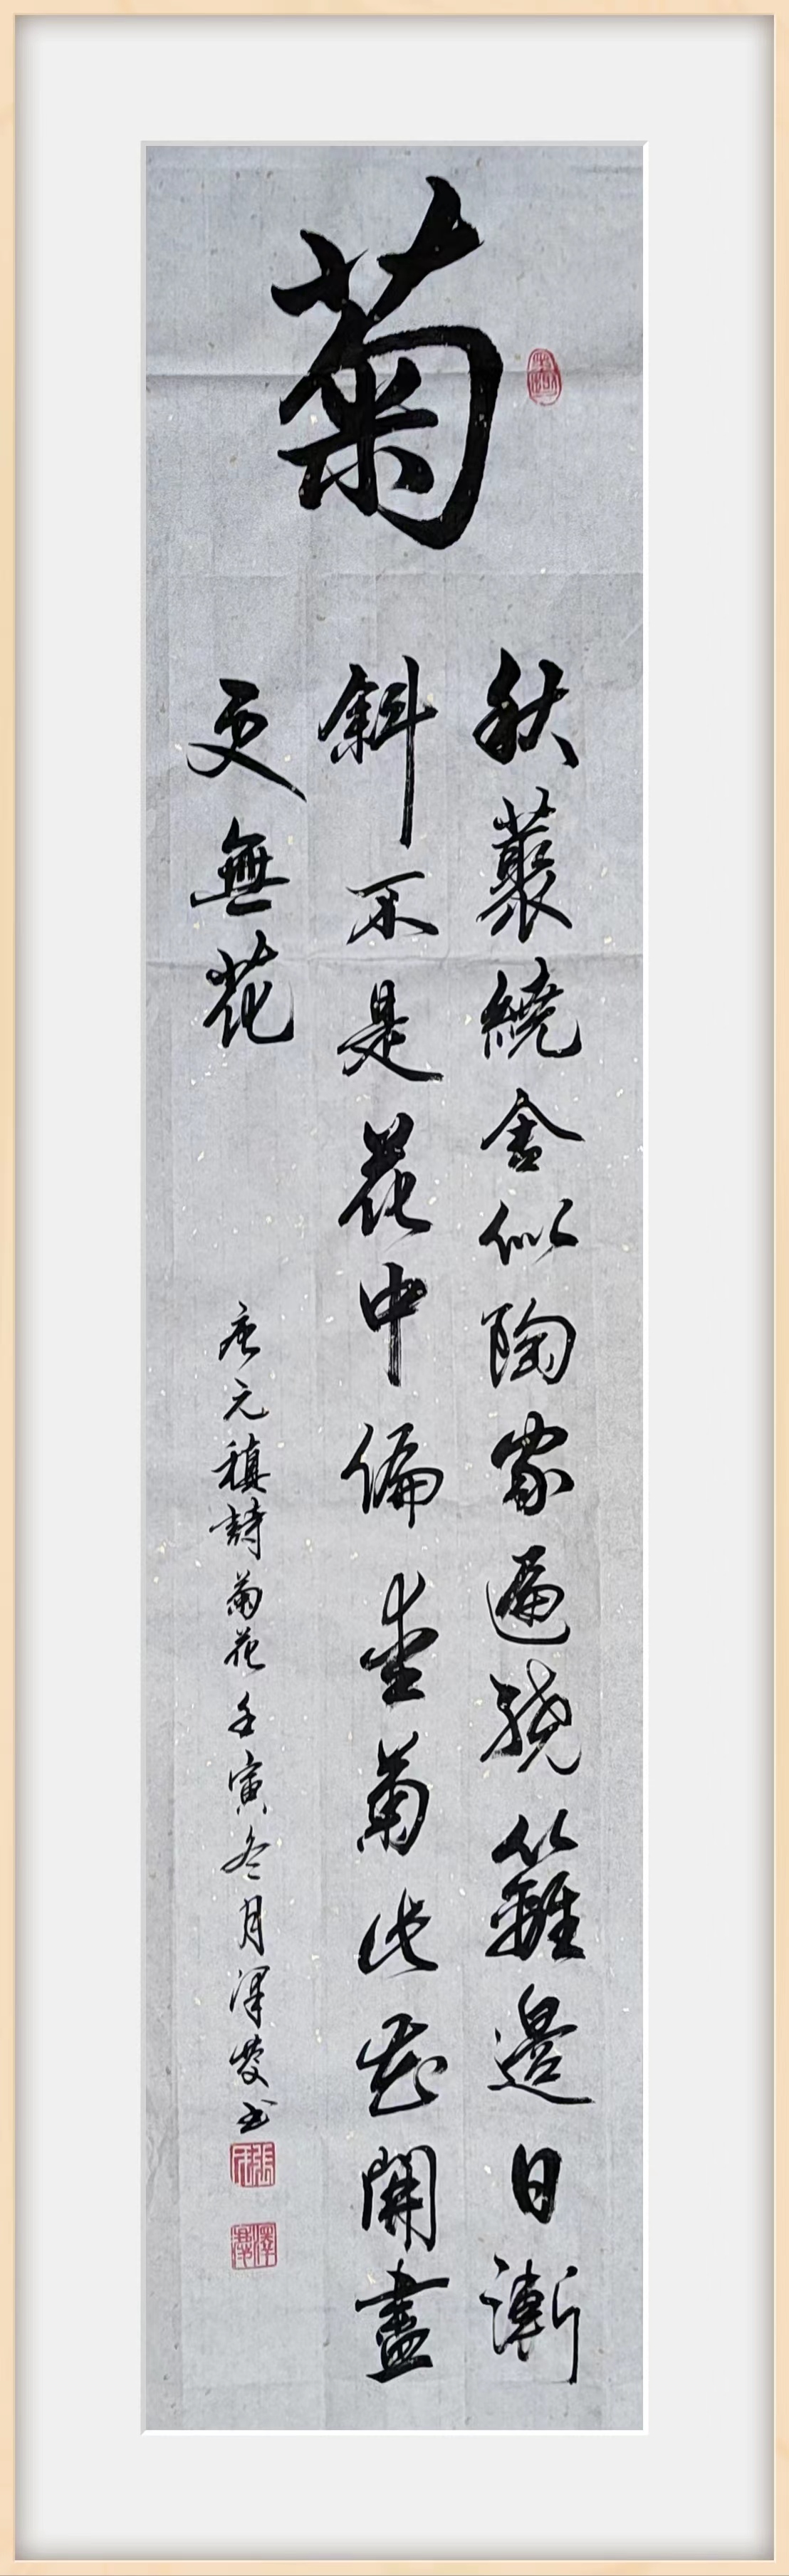 菊
秋叢繞舍似陶家遍繞籬邊日漸
斜不是花中偏愛菊此花開盡
更無花
唐元稹詩菊花壬寅冬月澤慶書